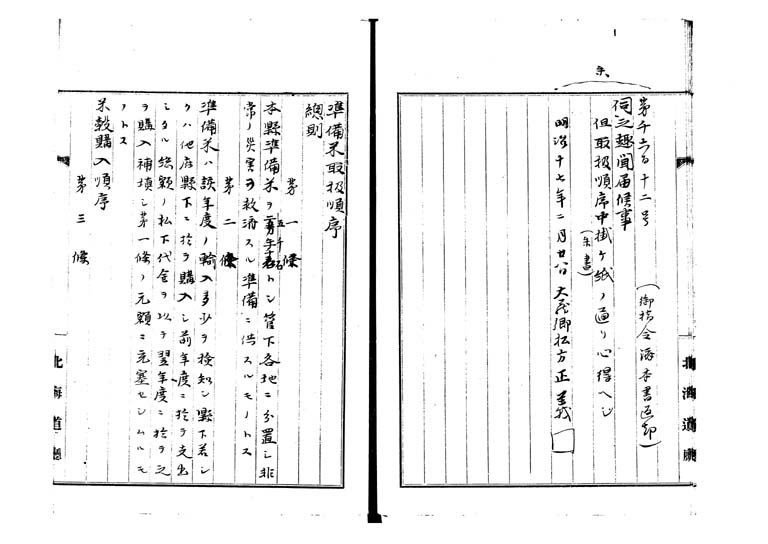 朱
第千六百十二号
(御指令済本書返却)
伺之趣聞届候事
但取扱順序中掛ケ紙ノ通リ心得ヘシ
(朱書)
明治十七年二月廿八日 大蔵卿松方正義
北海道廳
準備米取扱順序
總則
第一條
本縣準備米ヲ五千石トシ管下各地ニ分置シ非
常ノ災害ヲ救濟スル準備ニ供スルモノトス
第二條
準備米ハ該年度ノ輸入多少ヲ検知シ縣下若シ
クハ他府縣下ニ於テ購入シ前年度ニ於テ支出
シタル総額ノ払下代金ヲ以テ翌年度ニ於テ之
ヲ購入補填シ第一條ノ元額ニ充塞セシムルモ
ノトス
米穀購入順序
第三條
北海道廳